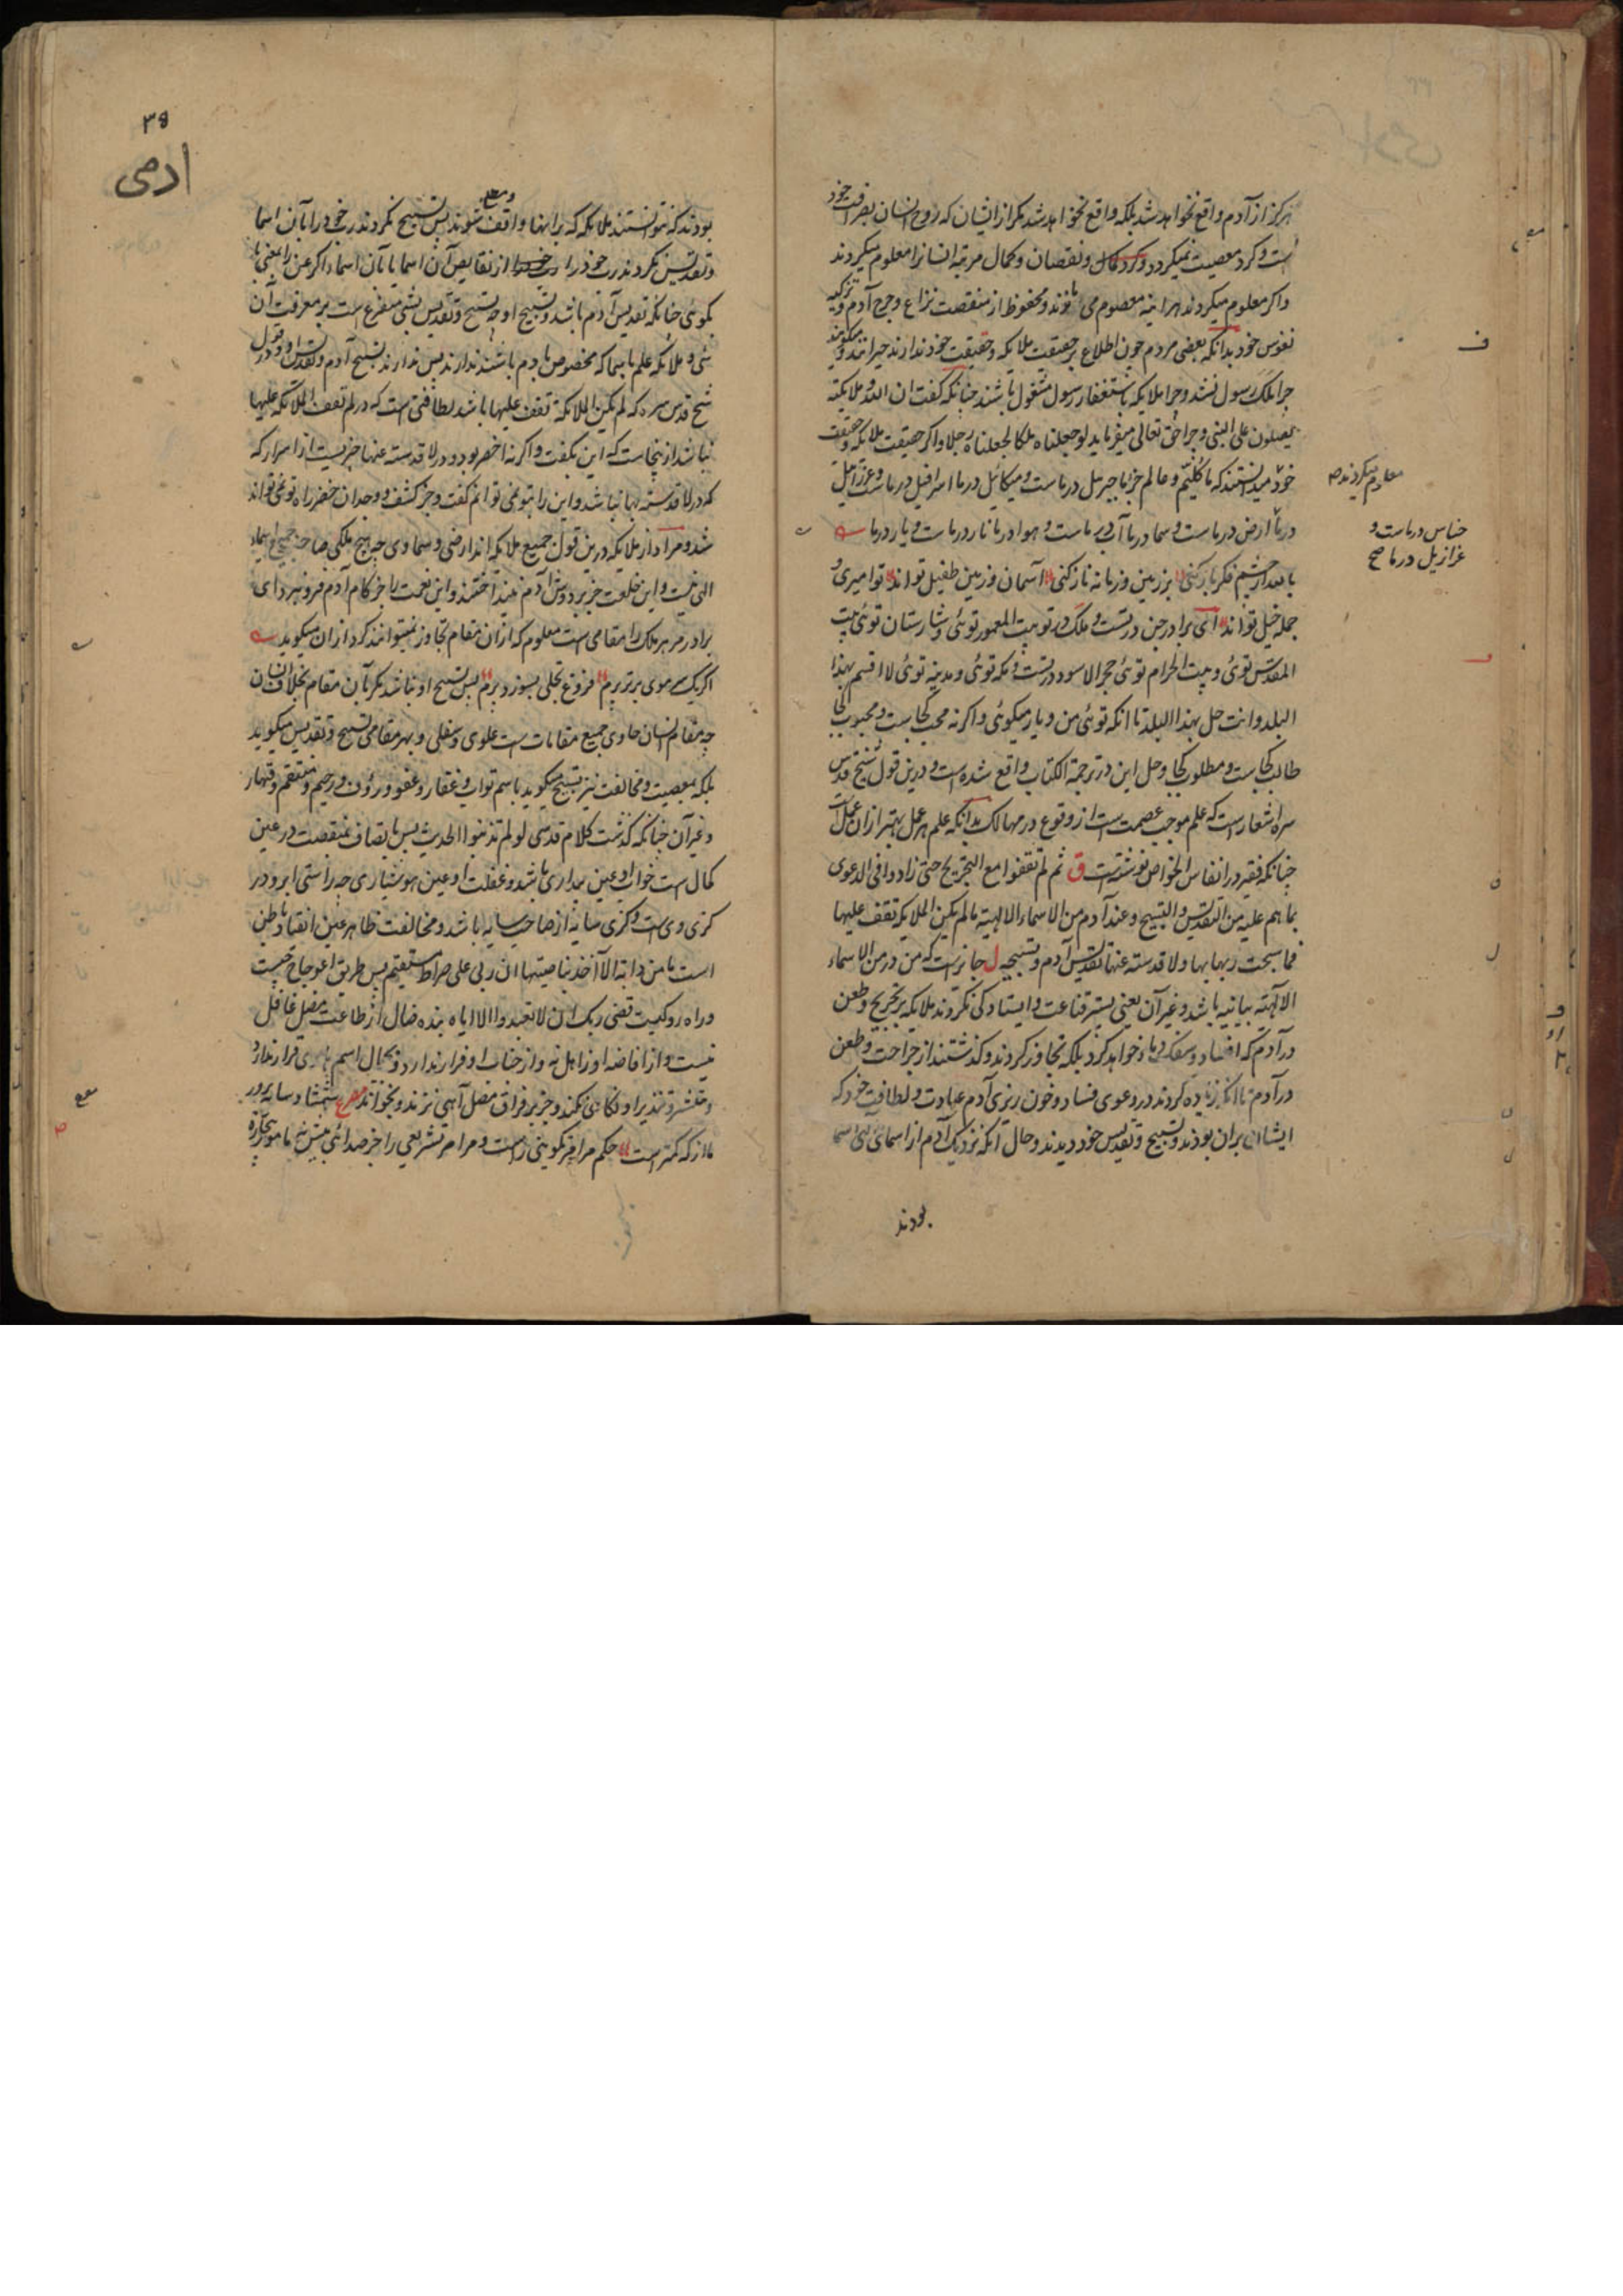 هرکز از آدم واقع نخواهد شد بلکه واقع نخواهد شد مکر از ایشان که روح انسان بصرافت خود
است و کرد معصیت نمیکردد و کرد کمال و نقصان و کمال مرتبه انسانرا معلوم میکردند
واکر معلوم میکردند هراینه معصوم می ماندند و محفوظ از منقصت نزاع و جرح آدم و تزکیه
نفوس خود بدانکه بعضی مردم چون اطلاع بر حقیقت ملایکه و حقیقت خود ندارند حیرانند و میکویند
چرا ملک رسول نشد و چرا ملایکه باستغفار رسول مشغول باشند چنانکه کفت ان الله و ملایکته
یصلون علی النبی و چرا حق تعالی میفرماید لو جعلناه ملکا لجعلناه رجلا واکر حقیقت ملایکه و حقیقت
خود میدانستند که ما کلیم و عالم جز ما جبرئیل درماست و میکائیل درما اسرافیل درماست و عزرائیل
معلوم میکردند صح
درما ارض درماست و سما درما آب درماست و هوا درما نار درماست و یار درما
خناس درماست و
عزازیل درما صح
بابعد از چشم فکر باز کنی بر زمین و زمانه ناز کنی آسمان و زمین طفیل تواند تو امیری و
جمله خیل تواند ای برادر جن در تست و ملک در تو بیت المعمور توئی و شارستان توئی بیت
المقدس توئی و بیت الحرام توئی حجر الاسود در تست و مکه توئی و مدینه توئی لا اقسم بهذا
البلد وانت حل بهذا البلد تا انکه توئی من و یار میکوئی واکر نه محب کجاست و محبوب کجا
طالب کجاست و مطلوب کجا و حل این در ترجمة الکتاب واقع شده است و درین قول شیخ قدس
سره اشعار است که علم موجب عصمت است از وقوع در مهالک بدانکه علم هر عمل بهتر از ان عمل است
چنانکه فقیر در انفاس الخواص نوشته است ق ثم لم تقفوا مع التجریح حتی زادوا فی الدعوی
بما هم علیه من التقدیس و التسبیح و عند آدم من الاسماء الالهیة مالم یکن الملایکه تقف علیها
فما سبحت ربها بها ولا قدسته عنها تقدیس آدم و تسبیحه ل جائز است که من در من الاسماء
الالهیه بیانیه باشد و غیر آن یعنی پستر قناعت و ایستادکی نکردند ملایکه بر تجریح و طعن
در آدم که افساد و سفک دماء خواهد کرد بلکه تجاوز کردند و کذشتند از جراحت و طعن
در آدم تا انکه زیاده کردند در دعوی فساد و خون ریزی آدم عبادت و لطافت خود که
ایشان بران بودند و تسبیح و تقدیس خود دیدند و حال آنکه نزدیک آدم از اسمای الهی اسما
بودند
۳۵
ادمی
بودند که نتوانستند ملائکه که برانها واقف شوند پس تسبیح نکردند رب خود را بآن اسما
و تقدیس نکردند رب خود را از نقایص آن اسما یا بآن اسماء اکر عن را بمعنی با
بکوئی چنانکه تقدیس آدم باشد و تسبیح او چه تسبیح و تقدیس شی متفرع است بر معرفت آن
شی و ملائکه علم باسما که مخصوص بادم باشند ندارند پس ندارند تسبیح آدم و تقدیس او و در قول
شیخ قدس سره که لم یکن الملائکة تقف علیها باشد لطافتی است که در لم تقف الملائکة علیها
نباشد از ینجاست که این بکفت واکر نه اخصر بود و در لا قدسته عنها خبریست از اسرار که
که در لا قدسته بها نباشد و این را بتو نمی توانم کفت و جز کشف و وجدان خضر راه تو نمی تواند
شد و مراد از ملائکه درین قول جمیع ملایکه اند ارضی و سماوی چه هیچ ملکی صاحب جمیع اسماء
الهی نیست و این خلعت جز بر دوش آدم نینداختند و این نعمت را جز کام آدم فرو نبرد ای
برادر مر هر ملک را مقامی است معلوم که ازان مقام تجاوز نمیتوانند کرد ازان میکوید
اکر یکسر موی برتر پرم فروغ تجلی بسوزد پرم پس تسبیح او نباشد مکر بآن مقام بخلاف انسان
چه مقام انسان حاوی جمیع مقامات است علوی و سفلی و بهر مقامی تسبیح و تقدیس میکوید
بلکه بمعصیت و مخالفت نیز تسبیح میکوید باسم تواب و غفار و عفو و رؤف و رحیم و منتقم و قهار
و غیر آن چنانکه کذشت کلام قدسی لو لم تذنبوا الحدیث پس باتصاف بمنقصت در عین
کمال است خواب او عین بیداری باشد و غفلت او عین هوشیاری چه راستی ابرو در
کژی وی است و کژی سایه از صاحب سایه باشد و مخالفت ظاهر عین انقیاد باطن
است ما من دابة الا آخذ بناصیتها ان ربی علی صراط مستقیم پس طریق اعوجاج چیست
و راه رو کیست قضی ربک ان لا تعبدوا الا ایاه بنده ضال از طاعت مضل غافل
نیست و از افاضه او زاهل نه و از جناب او فرار ندارد و بحال اسم هادی قرار ندارد